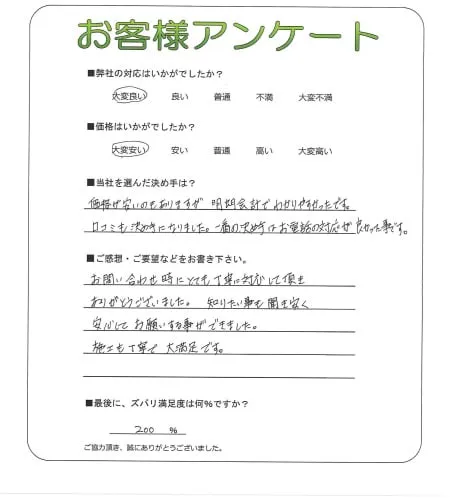 お客様アンケート
■弊社の対応はいかがでしたか？
大変良い 良い 普通 不満 大変不満
■価格はいかがでしたか？
大変安い 安い 普通 高い 大変高い
■当社を選んだ決め手は？
価格が安いのもありますが 明朗会計でわかりやすかったです。
口コミも決め手になりました。一番の決め手はお電話の対応が良かった事です。
■ご感想・ご要望などをお書き下さい。
お問い合わせ時にとても丁寧に対応して頂き
ありがとうございました。 知りたい事も聞き安く
安心してお願いする事ができました。
施工も丁寧で 大満足です。
■最後に、ズバリ満足度は何%ですか？
200 %
ご協力頂き、誠にありがとうございました。